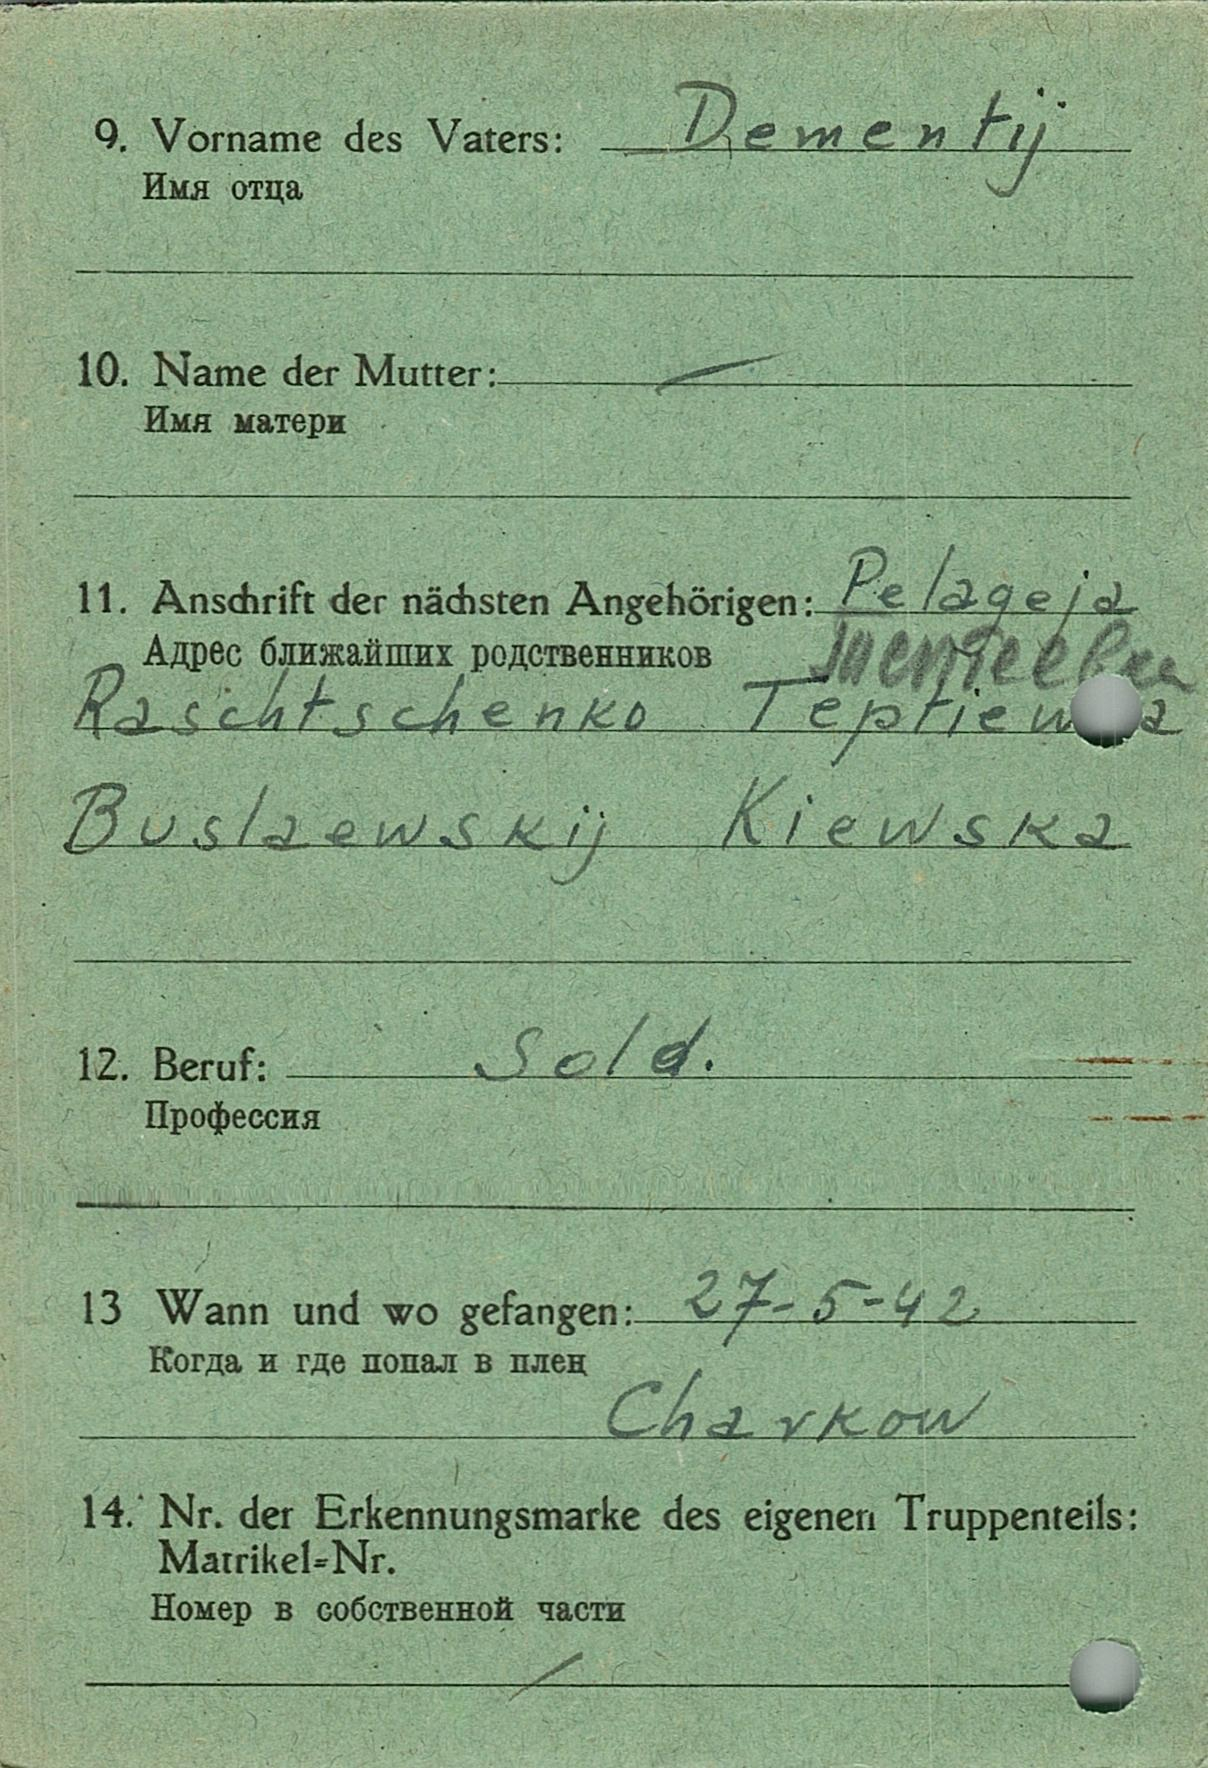 9. Vorname des Vaters: Dementij
Имя отца
10. Name der Mutter: —
Имя матери
11. Anschrift der nächsten Angehörigen: Pelageja
Адрес ближайших родственников
Raschtschenko Teptiew a
Buslaewskij Kiewska
12. Beruf: Sold.
Профессия
13 Wann und wo gefangen: 27-5-42
Когда и где попал в плен
Charkow
14. Nr. der Erkennungsmarke des eigenen Truppenteils:
Matrikel=Nr.
Номер в собственной части
/